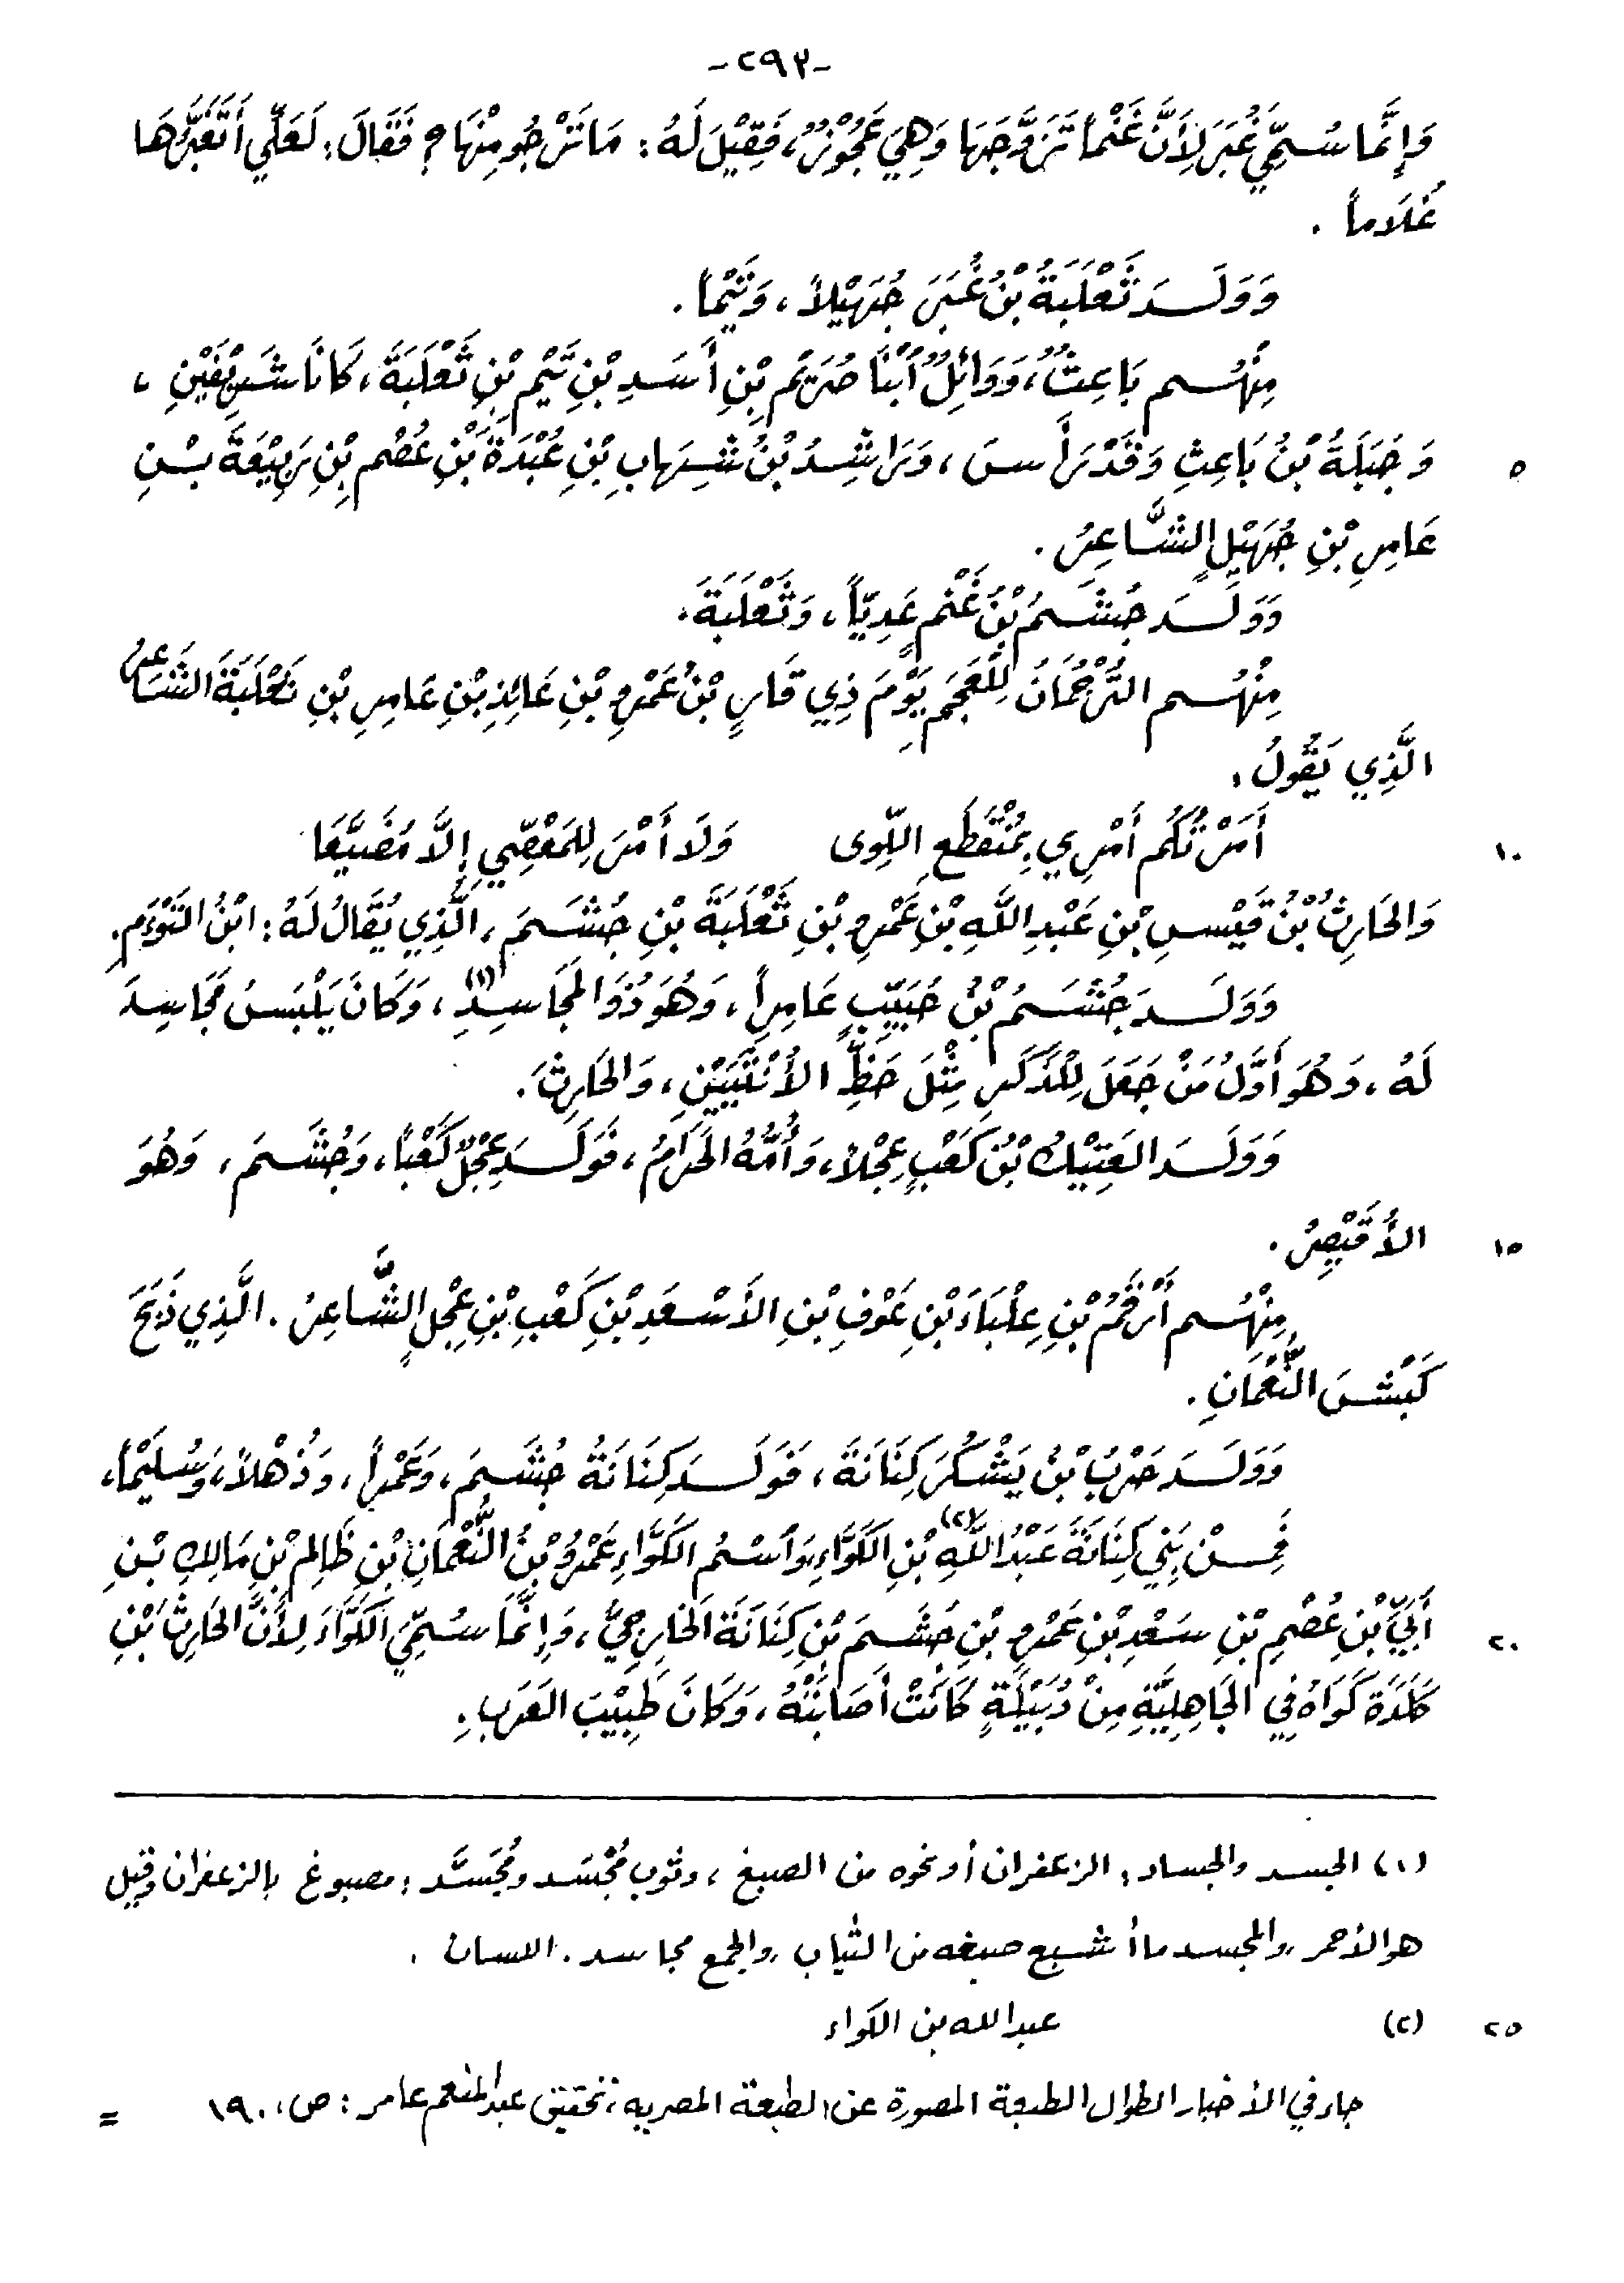 -٢٩٣-
وَإِنَّمَا سُمِّيَ غُبَرَ لِأَنَّ غَنْماً تَزَوَّجَهَا وَهِيَ عَجُوْزٌ، فَقِيْلَ لَهُ: مَا تَرْجُو مِنْهَا؟ فَقَالَ: لَعَلِّي أَتَغَبَّرُهَا
غُلَاماً .
وَوَلَدَ ثَعْلَبَةُ بْنُ غُبَرَ جُهَيْلاً، وَتَيْماً.
مِنْهُم بَاعِثٌ، وَوَائِلٌ ابْنَا صُرَيْمِ بْنِ أَسَدِ بْنِ تَيْمِ بْنِ ثَعْلَبَةَ، كَانَا شَرِيْفَيْنِ،
٥ وَجَبَلَةُ بْنُ بَاعِثِ وَقَدْ رَأَسَ، وَرَاشِدُ بْنُ شِهَابِ بْنِ عَبْدَةَ بْنِ عُصْمِ بْنِ رَبِيْعَةَ بْنِ
عَامِرِ بْنِ جُهَيْلٍ الشَّاعِرُ.
وَوَلَدَ جُشَمُ بْنُ غَنْمٍ عَدِيّاً، وَثَعْلَبَةَ.
مِنْهُم التَّرْجُمَانُ لِلْعَجَمِ يَوْمَ ذِي قَارٍ بْنُ عَمْرِو بْنِ عَائِذِ بْنِ عَامِرِ بْنِ ثَعْلَبَةَ الشَّاعِرُ
الَّذِي يَقُولُ:
١٠ أَمَرْتُكُم أَمْرِي بِمُنْقَطَعِ اللِّوى وَلَا أَمْرَ لِلمَعْصِيِّ إِلَّا مُضَيَّعَا
وَالحَارِثُ بْنُ قَيْسِ بْنِ عَبْدِ اللَّهِ بْنِ عَمْرِو بْنِ ثَعْلَبَةَ بْنِ جُشَمَ، الَّذِي يُقَالُ لَهُ: ابْنُ التَّوْءَمِ.
وَوَلَدَ جُشَمُ بْنُ حُبَيِّبٍ عَامِراً، وَهُوَ ذُوَ المَجَاسِدِ(١)، وَكَانَ يَلْبَسُ مَجَاسِدَ
لَهُ، وَهُوَ أَوَّلُ مَنْ جَعَلَ لِلْذَكَرِ مِثْلَ حَظِّ الأُنْثَيَيْنِ، وَالحَارِثَ.
وَوَلَدَ العَتِيْكُ بْنُ كَعْبٍ عِجْلاً، وَأُمُّهُ الحَرَامُ، فَوَلَدَ عِجْلٌ كَعْباً، وَجُشَمَ، وَهُوَ
١٥ الأُقَيْصِرُ.
مِنْهُم أَرْقَمُ بْنِ عِلْبَاءَ بْنِ عَوْفِ بْنِ الأَسْعَدِ بْنِ كَعْبِ بْنِ عِجْلٍ الشَّاعِرُ. الَّذِي ذَبَحَ
كَبْشَ النُّعْمَانِ.
وَوَلَدَ حَرْبُ بْنُ يَشْكُرَ كِنَانَةَ، فَوَلَدَ كِنَانَةُ جُشَمَ، وَعَمْراً، وَذُهْلاً، وَسُلَيْماً،
فَمِنْ بَنِي كِنَانَةَ عَبْدُ اللَّهِ(٢) بْنِ الكَوَّاءِ وَاسْمُ الكَوَّاءِ عَمْرُو بْنُ النُّعْمَانِ بْنِ ظَالِمِ بْنِ مَالِكِ بْنِ
٢٠ أُبَيِّ بْنِ عُصْمِ بْنِ سَعْدِ بْنِ عَمْرِو بْنِ جُشَمَ بْنِ كِنَانَةَ الخَارِجِيُّ، وَإِنَّمَا سُمِّيَ الكَوَّاءَ لِأَنَّ الحَارِثَ بْنِ
كَلَدَةَ كَوَاهُ فِي الجَاهِلِيَّةِ مِنْ دُبَيْلَةٍ كَانَتْ أَصَابَتْهُ، وَكَانَ طَبِيْبَ العَرَبِ.
(١) الجسد والجساد: الزعفران أو نحوه من الصبغ، وثوب مُجْسَد ومُجَسَّد: مصبوغ بالزعفران وقيل
هو الأحمر، والمجسد ما أشبع صبغه من الثياب، والجمع مجاسد. اللسان .
٢٥ (٢) عبد الله بن الكواء
جاء في الأخبار الطوال الطبعة المصورة عن الطبعة المصريه، تحقيق عبد المنعم عامر: ص، ١٩٠ =